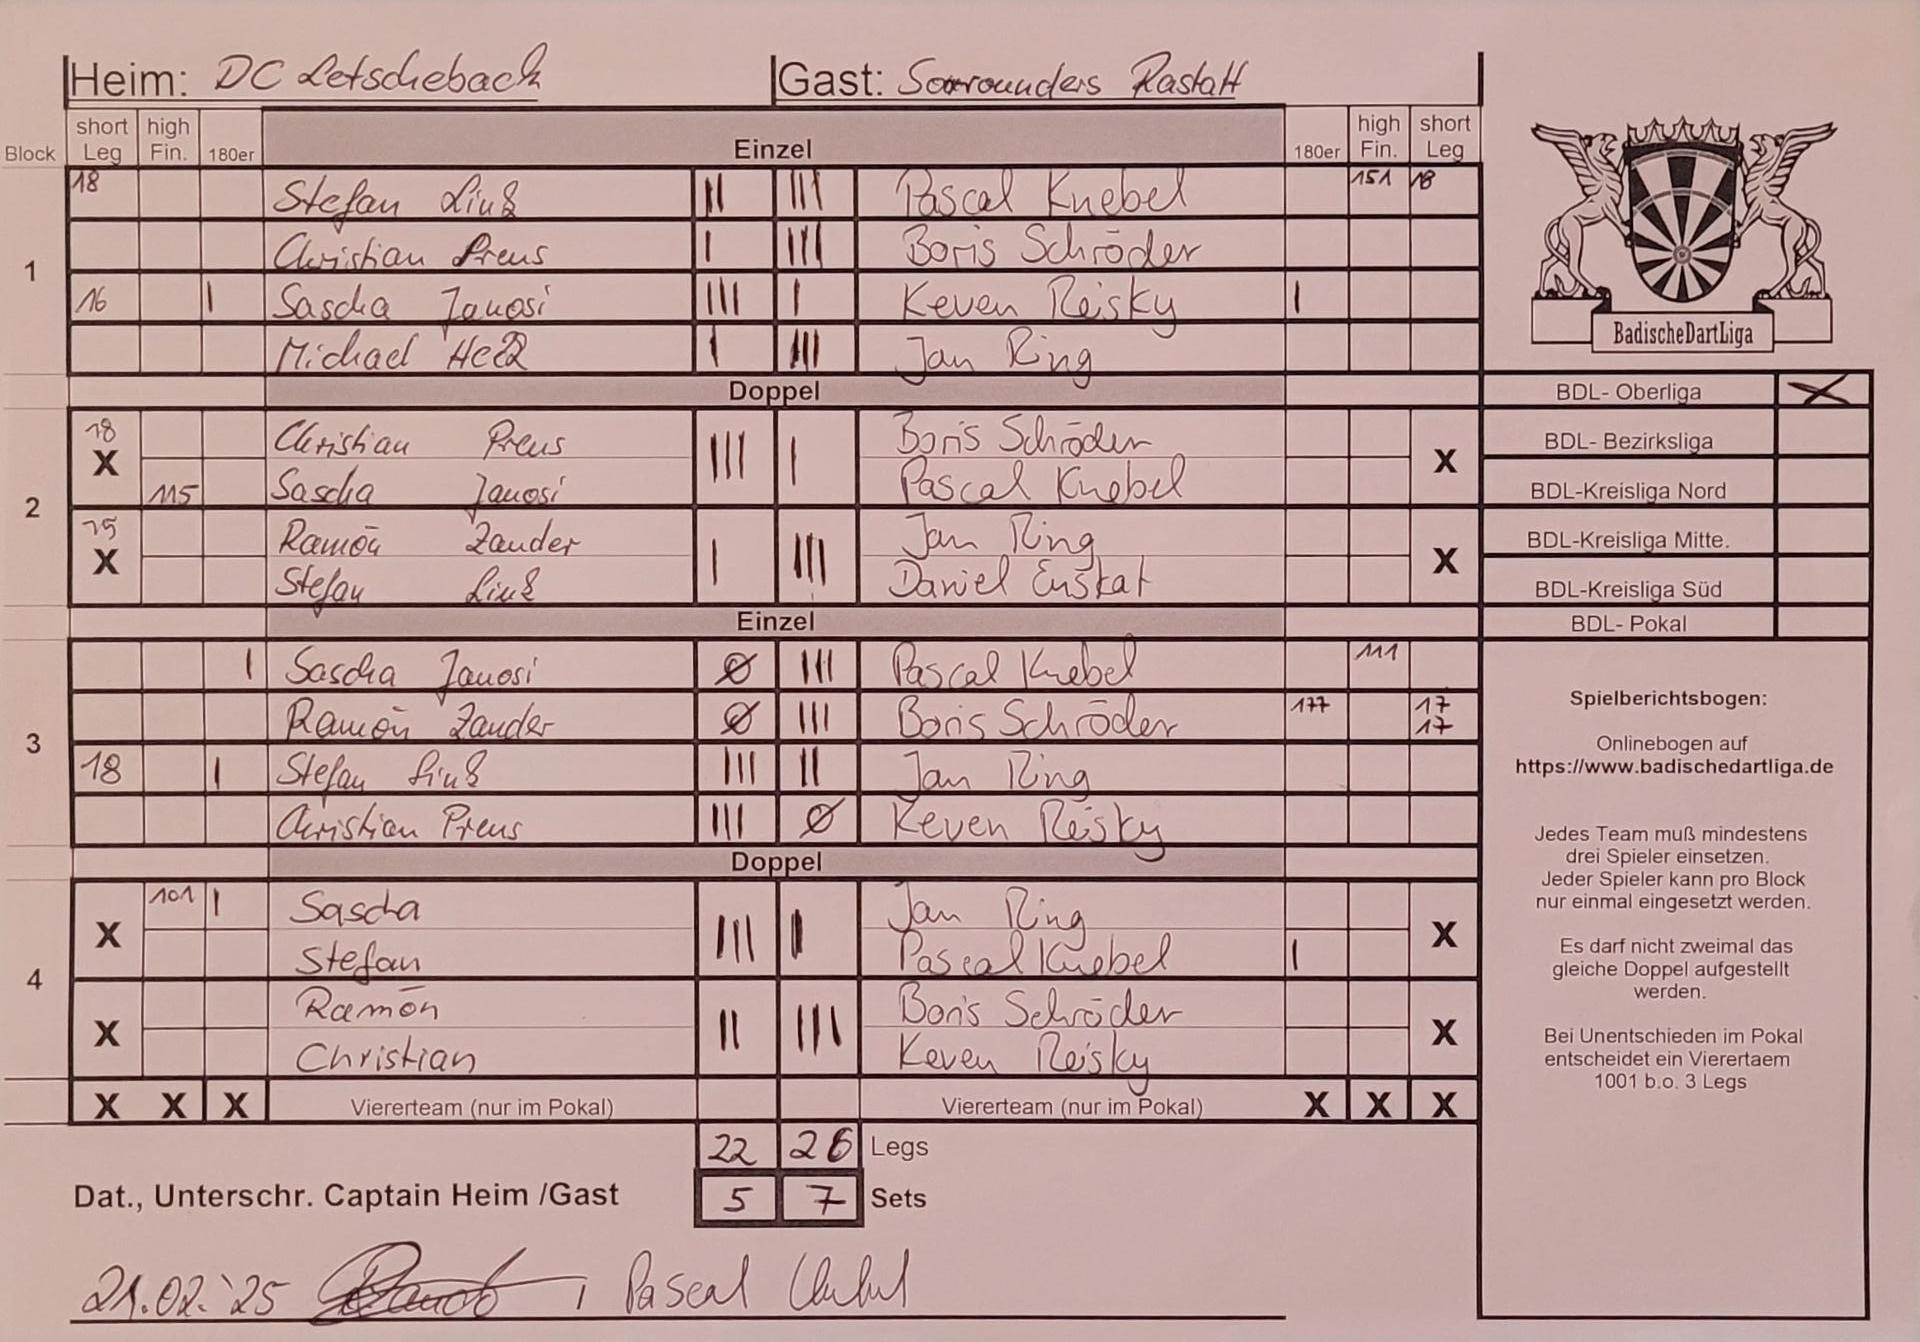 Heim: DC Letschebach Gast: Soorounders Rastatt
Block short Leg high Fin. 180er Einzel 180er high Fin. short Leg
1
18 Stefan Link || ||| Pascal Knebel 151 18
Christian Preus | ||| Boris Schröder
16 | Sascha Janosi ||| | Keven Reisky |
Michael | ||| Jan Ring
Doppel
2
18 X Christian Preus ||| | Boris Schröder X
115 Sascha Janosi Pascal Knebel
15 X Ramon Zander | ||| Jan Ring X
Stefan Link Daniel Enskat
Einzel
3
| Sascha Janosi Ø ||| Pascal Knebel 111
Ramon Zander Ø ||| Boris Schröder 177 17 17
18 | Stefan Link ||| || Jan Ring
Christian Preus ||| Ø Keven Reisky
Doppel
4
X 101 | Sascha ||| || Jan Ring X
Stefan Pascal Knebel |
X Ramon || ||| Boris Schröder X
Christian Keven Reisky
X X X Viererteam (nur im Pokal) Viererteam (nur im Pokal) X X X
22 26 Legs
5 7 Sets
Dat., Unterschr. Captain Heim /Gast
21.02.'25 Pascal Knebel
BadischeDartLiga
BDL- Oberliga X
BDL- Bezirksliga
BDL-Kreisliga Nord
BDL-Kreisliga Mitte.
BDL-Kreisliga Süd
BDL- Pokal
Spielberichtsbogen:
Onlinebogen auf
https://www.badischedartliga.de
Jedes Team muß mindestens
drei Spieler einsetzen.
Jeder Spieler kann pro Block
nur einmal eingesetzt werden.
Es darf nicht zweimal das
gleiche Doppel aufgestellt
werden.
Bei Unentschieden im Pokal
entscheidet ein Vierertaem
1001 b.o. 3 Legs